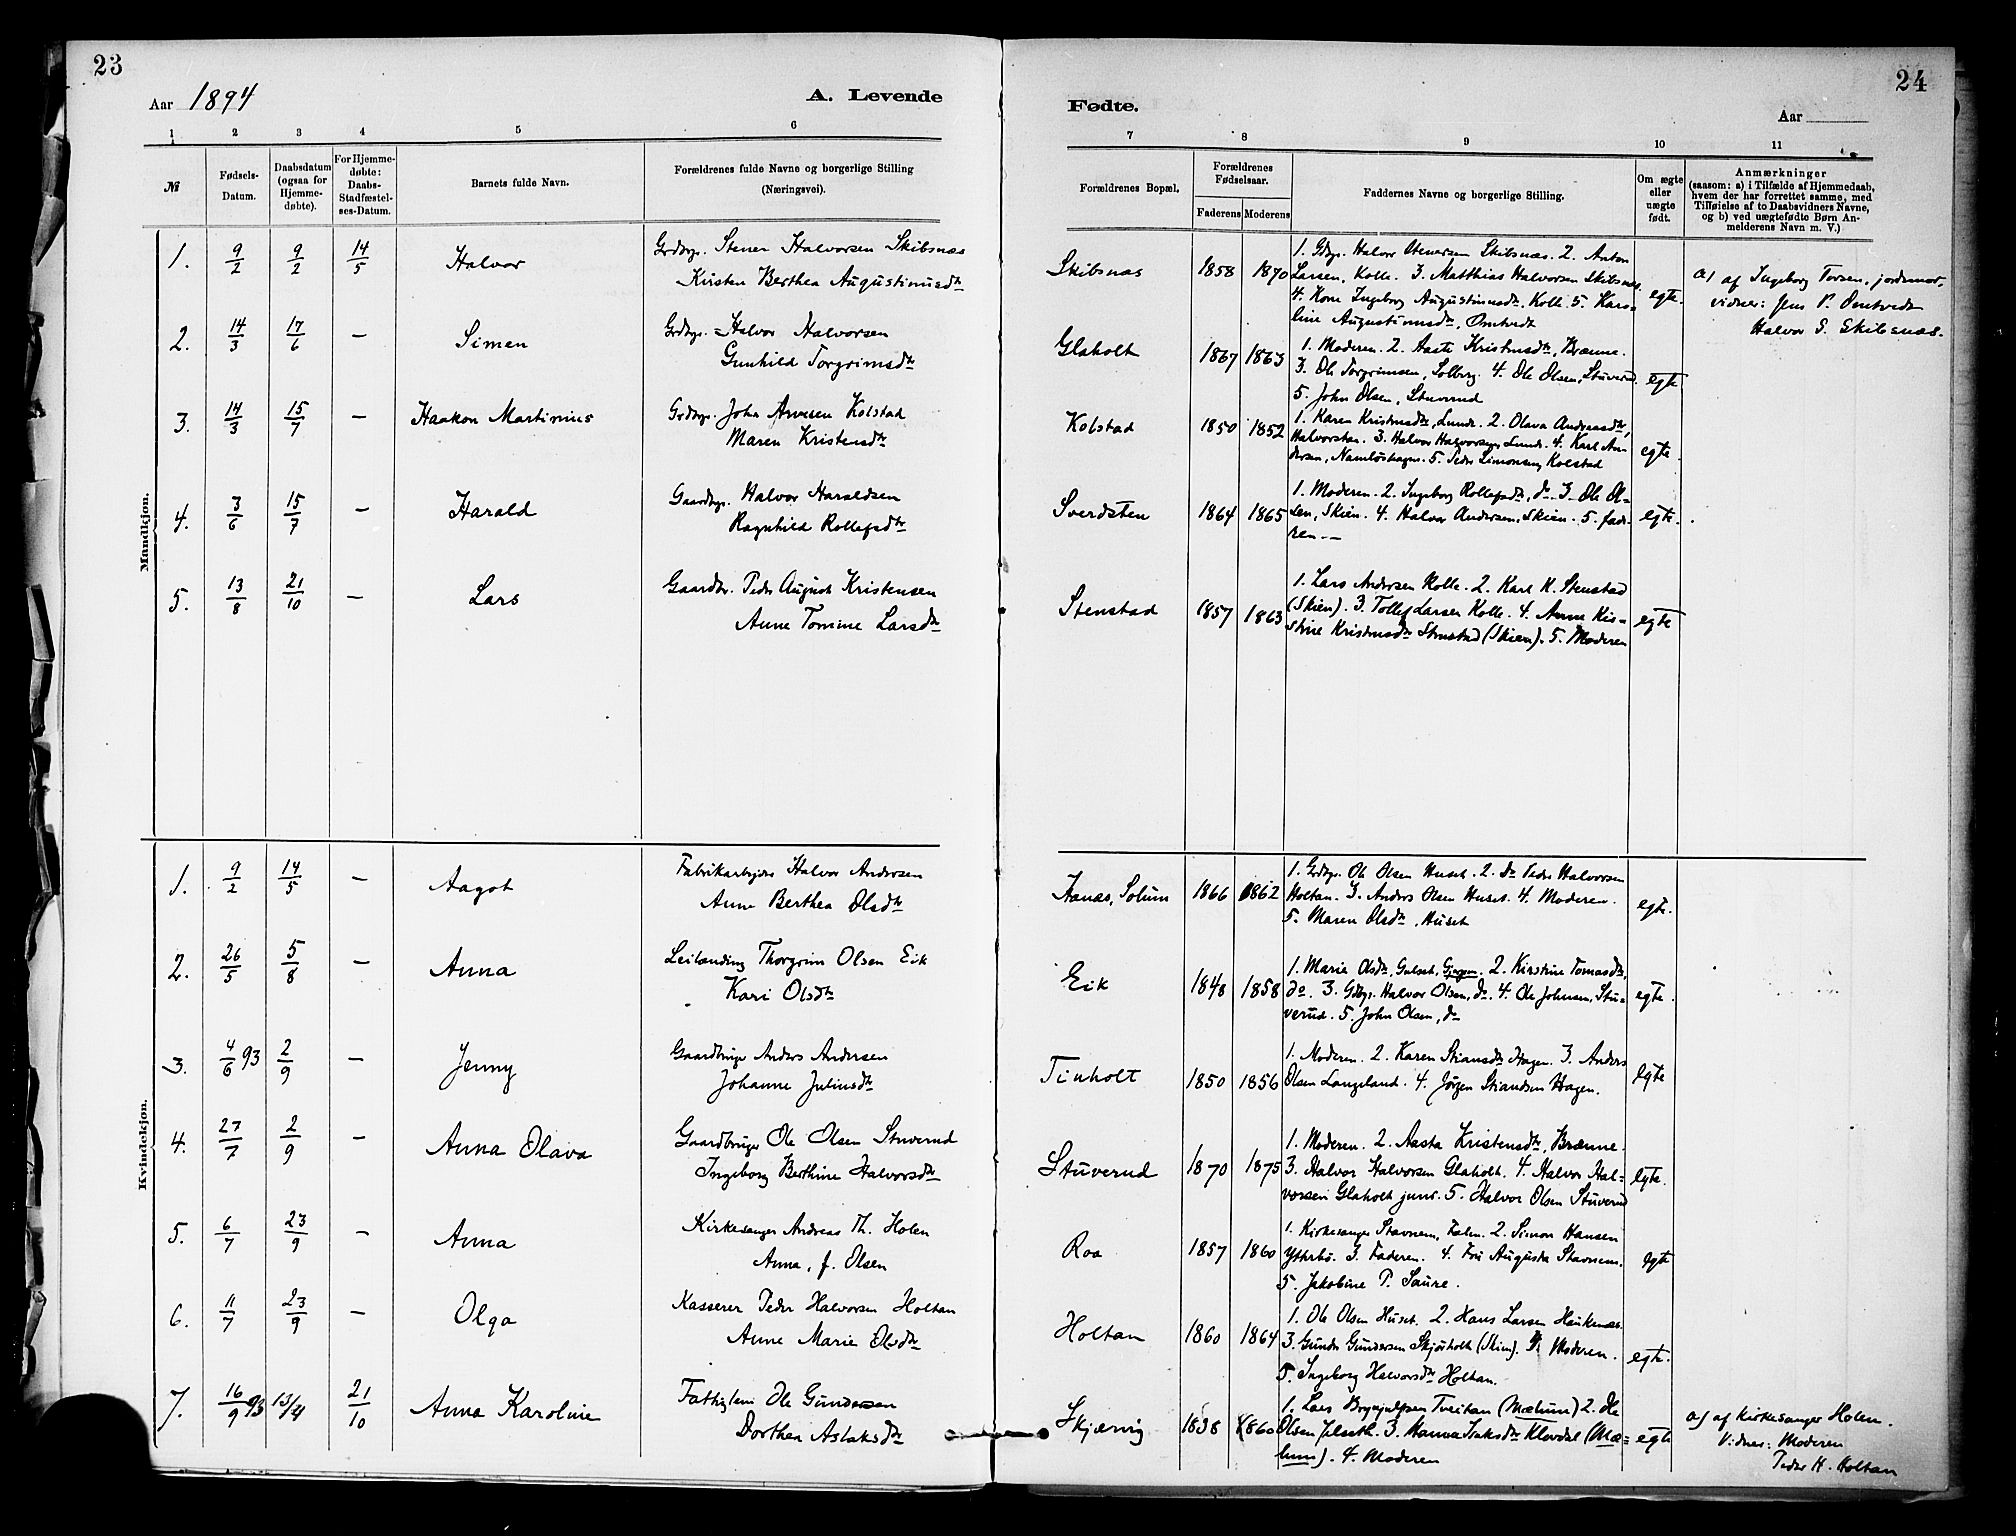 23
24
Aar 1894
A. Levende
Fødte.
Aar
1 2 3 4 5 6 7 8 9 10 11
№
Fødsels-
Datum.
Daabsdatum
(ogsaa for
Hjemme-
døbte).
For Hjemme-
døbte:
Daabs-
Stadfæstel-
ses-Datum.
Barnets fulde Navn.
Forældrenes fulde Navne og borgerlige Stilling
(Næringsvei).
Forældrenes Bopæl.
Forældrenes
Fødselsaar.
Faderens Moderens
Faddernes Navne og borgerlige Stilling.
Om ægte
eller
uægte
født.
Anmærkninger
(saasom: a) i Tilfælde af Hjemmedaab,
hvem der har forrettet samme, med
Tilføielse af to Daabsvidners Navne,
og b) ved uægtefødte Børn An-
melderens Navn m. V.)
Mandkjøn.
1. 9/2 9/2 14/5 Halvor
Grdbgr. Stener Halvorsen Skibsnæs
Kirsten Berthea Augustinusdtr
Skibsnæs 1858 1870
1. Gbgr. Halvor Stenersen Skibsnæs. 2. Anton
Larsen, Kolle. 3. Matthias Halvorsen Skibsnæs.
4. Kone Ingeborg Augustinusdtr, Kolle. 5. Karo-
line Augustinusdtr, Omtvedt
egte.
a) af Ingeborg Torsen, jordmor,
vidner: Jens P. Omtvedt
Halvor S. Skibsnæs.
2. 14/3 17/6 — Simen
Grdbgr. Halvor Halvorsen
Gunhild Torgrimsdtr
Glaholt 1867 1863
1. Moderen. 2. Aaste Kristensdtr, Brænne.
3. Ole Torgrimsen, Solberg. 4. Ole Olsen, Stuverud.
5. John Olsen, Stuverud
egte
3. 14/3 15/7 — Haakon Martinius
Grdbgr. John Arvesen Kolstad
Maren Kristensdtr
Kolstad 1850 1852
1. Karen Kristensdtr, Lunde. 2. Olava Andreasdtr,
3. Halvor Halvorsen, Lunde. 4. Karl An-
dersen, 5. Peder Simonsen, Kolstad
egte.
4. 3/6 15/7 — Harald
Gaardbgr. Halvor Haraldsen
Ragnhild Rollefsdtr
Sverdsten 1864 1865
1. Moderen. 2. Ingeborg Rollefsdtr, do 3. Ole Ol-
sen, Skien. 4. Halvor Andersen, Skien. 5. fade-
ren. —
egte.
5. 13/8 21/10 — Lars
Gaardbr. Peder August Kristensen
Anne Tomine Larsdtr
Stenstad 1857 1863
1. Lars Andersen Kolle. 2. Karl K. Stenstad
(Skien). 3. Tollef Larsen Kolle. 4. Anne Kis-
stine Kristensdtr Stenstad (Skien). 5. Moderen
egte
Kvindekjøn.
1. 9/2 14/5 — Aagot
Fabrikarbejder Halvor Andersen
Anne Berthea Olsdtr
Hanæs, Solum 1866 1862
1. Grdbgr. Ole Olsen Huset. 2. do Peder Halvorsen
Holtan. 3. Anders Olsen Huset. 4. Moderen.
5. Maren Olsdtr, Huset
egte.
2. 26/5 5/8 — Anna
Leilænding Thorgrim Olsen Eik
Kari Olsdtr
Eik 1848 1858
1. Marie Olsdtr, Gulset, Gjerpen. 2. Kirstine Tomasdtr,
do. 3. Gdbgr. Halvor Olsen, do. 4. Ole Johnsen, Stu-
verud. 5. John Olsen, do
egte.
3. 4/6 93 2/9 — Jenny
Gaardbruger Anders Andersen
Johanne Juliusdtr
Tinholt 1850 1856
1. Moderen. 2. Karen Stiansdtr Hagen. 3. Anders
Olsen Langeland. 4. Jørgen Stiandsen Hagen.
egte
4. 27/7 2/9 — Anna Olava
Gaardbruger Ole Olsen Stuverud
Ingeborg Berthine Halvorsdtr
Stuverud 1870 1875
1. Moderen. 2. Aasta Kristensdtr, Brænne.
3. Halvor Halvorsen Glaholt. 4. Halvor Hal-
vorsen Glaholt junr. 5. Halvor Olsen Stuverud
egte.
5. 6/7 23/9 — Anna
Kirkesanger Andreas Th. Holen
Anna, f. Olsen
Roa 1857 1860
1. Kirkesanger Stavnem, 2. Simon Hansen
Ytterbø. 3. Faderen. 4. Fru Augusta Stavnem.
5. Jakobine P. Saure.
egte
6. 11/7 23/9 — Olga
Kasserer Peder Halvorsen Holtan
Anne Marie Olsdtr
Holtan 1860 1864
1. Ole Olsen Huset. 2. Hans Larsen Haukenæs.
3. Gunder Gundersen Skjørholt (Skien). 4. Moderen.
5. Ingeborg Halvorsdtr Holtan.
egte.
7. 16/9 93 13/4 21/10 Anna Karoline
Fattiglem Ole Gundersen
Dorthea Aslaksdtr
Skjærvig 1838 1860
1. Lars Brynjulfsen Tveitan (Mælum) 2. Ole
Olsen Jelseth. 3. Hanna Isaksdtr Klovdal (Mæ-
lum). 4. Moderen
egte
a) af Kirkesanger Holen.
Vidner: Moderen
Peder H. Holtan